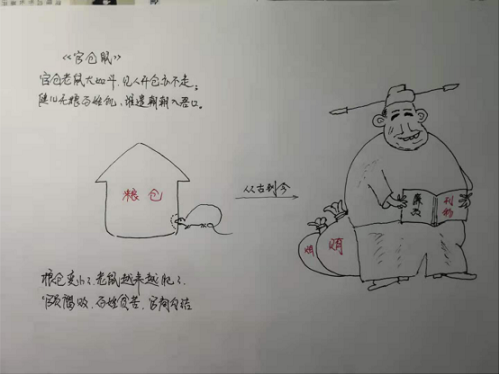 《官仓鼠》
官仓老鼠大如斗,见人开仓亦不走;
健儿无粮百姓饥、谁遣朝朝入君口。
粮仓
从古到今
刊物
贿
粮仓变小了、老鼠越来越肥了、
腐败、百姓贫苦、官商勾结